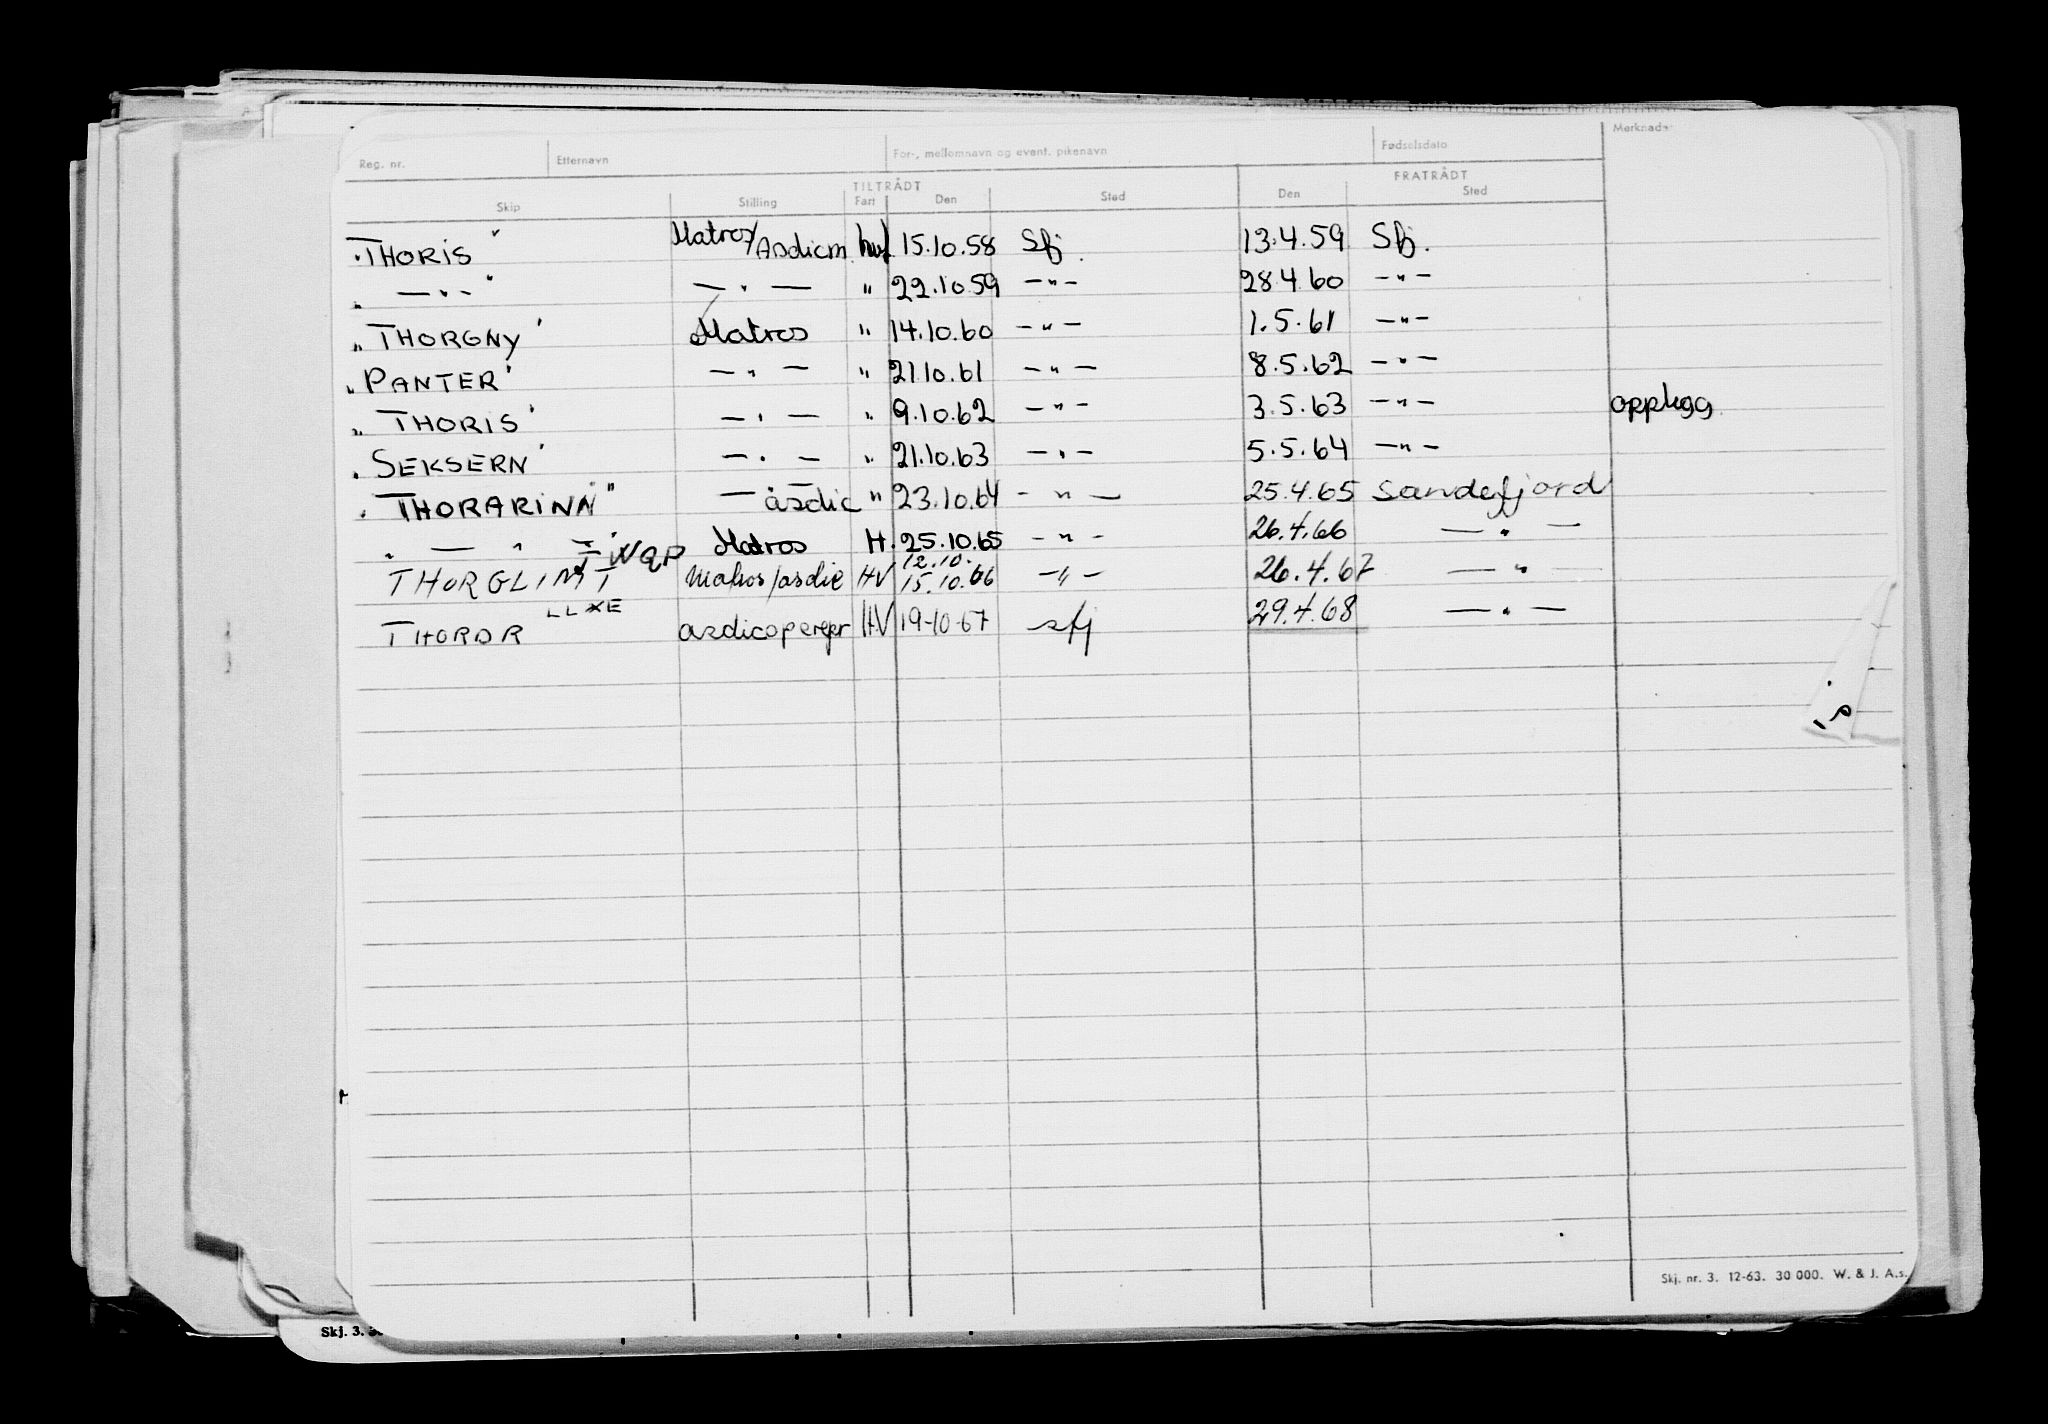 Reg. nr. Etternavn For-, mellomnavn og event. pikenavn Fødselsdato Merknader
TILTRÅDT FRATRÅDT
Skip Stilling Fart Den Sted Den Sted
"THORIS" Matros/Asdicm. hvf. 15.10.58 Sfj. 13.4.59 Sfj.
" — " — " — " — " 22.10.59 — " — 28.4.60 — " —
"THORGNY" Matros " 14.10.60 — " — 1.5.61 — " —
"PANTER" — " — " 21.10.61 — " — 8.5.62 — " —
"THORIS" — " — " 9.10.62 — " — 3.5.63 — " — opplegg
"SEKSERN" — " — " 21.10.63 — " — 5.5.64 — " —
"THORARINN" — asdic " 23.10.64 — " — 25.4.65 Sandefjord
" — " — " Matros H. 25.10.65 — " — 26.4.66 — " —
LNQP 12.10.
THORGLIMT Matros/asdic HV 15.10.66 — " — 26.4.67 — " —
LLXE
THORDR asdicoperer HV 19-10-67 sfj 29.4.68 — " —
Skj. nr. 3. 12-63. 30 000. W. & J. A.s.
Skj. 3.